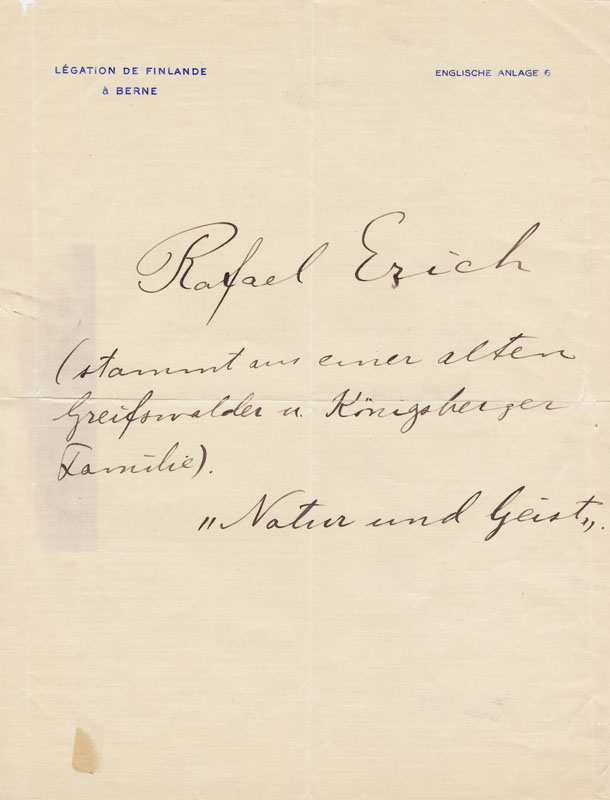 LÉGATION DE FINLANDE
à BERNE
ENGLISCHE ANLAGE 6
Rafael Erich
(stammt aus einer alten
Greifswalder u. Königsberger
Familie).
„Natur und Geist„.